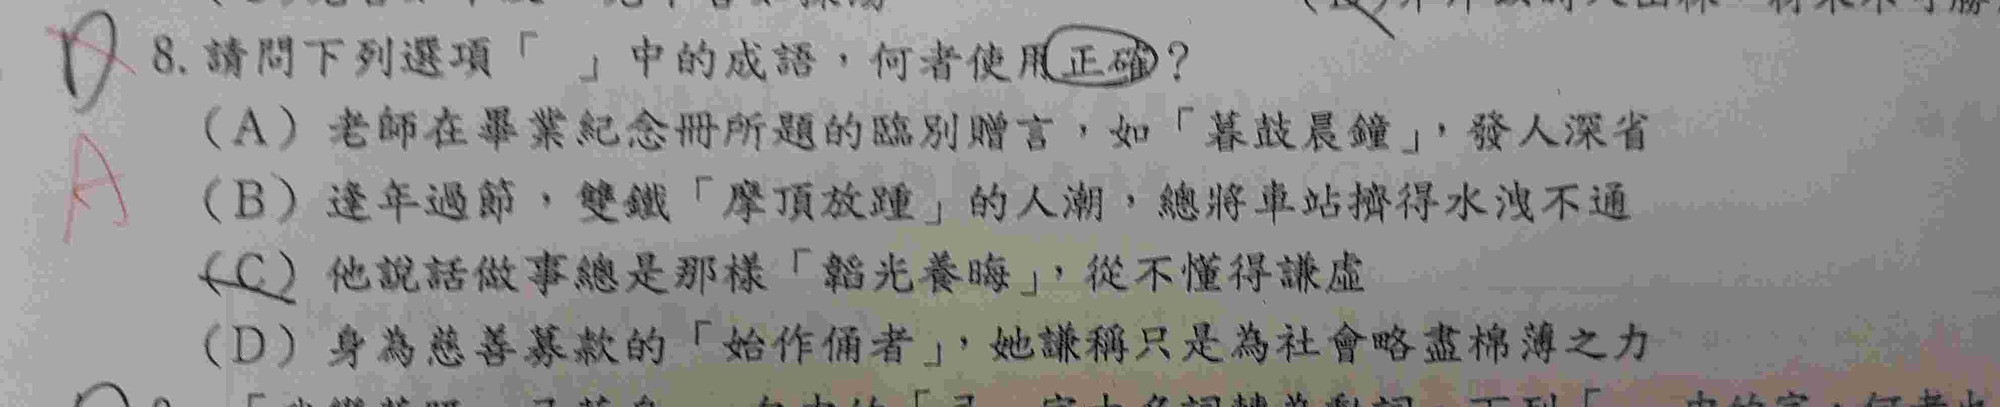 D
8. 請問下列選項「　」中的成語，何者使用正確？
A
（A）老師在畢業紀念冊所題的臨別贈言，如「暮鼓晨鐘」，發人深省
（B）逢年過節，雙鐵「摩頂放踵」的人潮，總將車站擠得水洩不通
（C）他說話做事總是那樣「韜光養晦」，從不懂得謙虛
（D）身為慈善募款的「始作俑者」，她謙稱只是為社會略盡棉薄之力